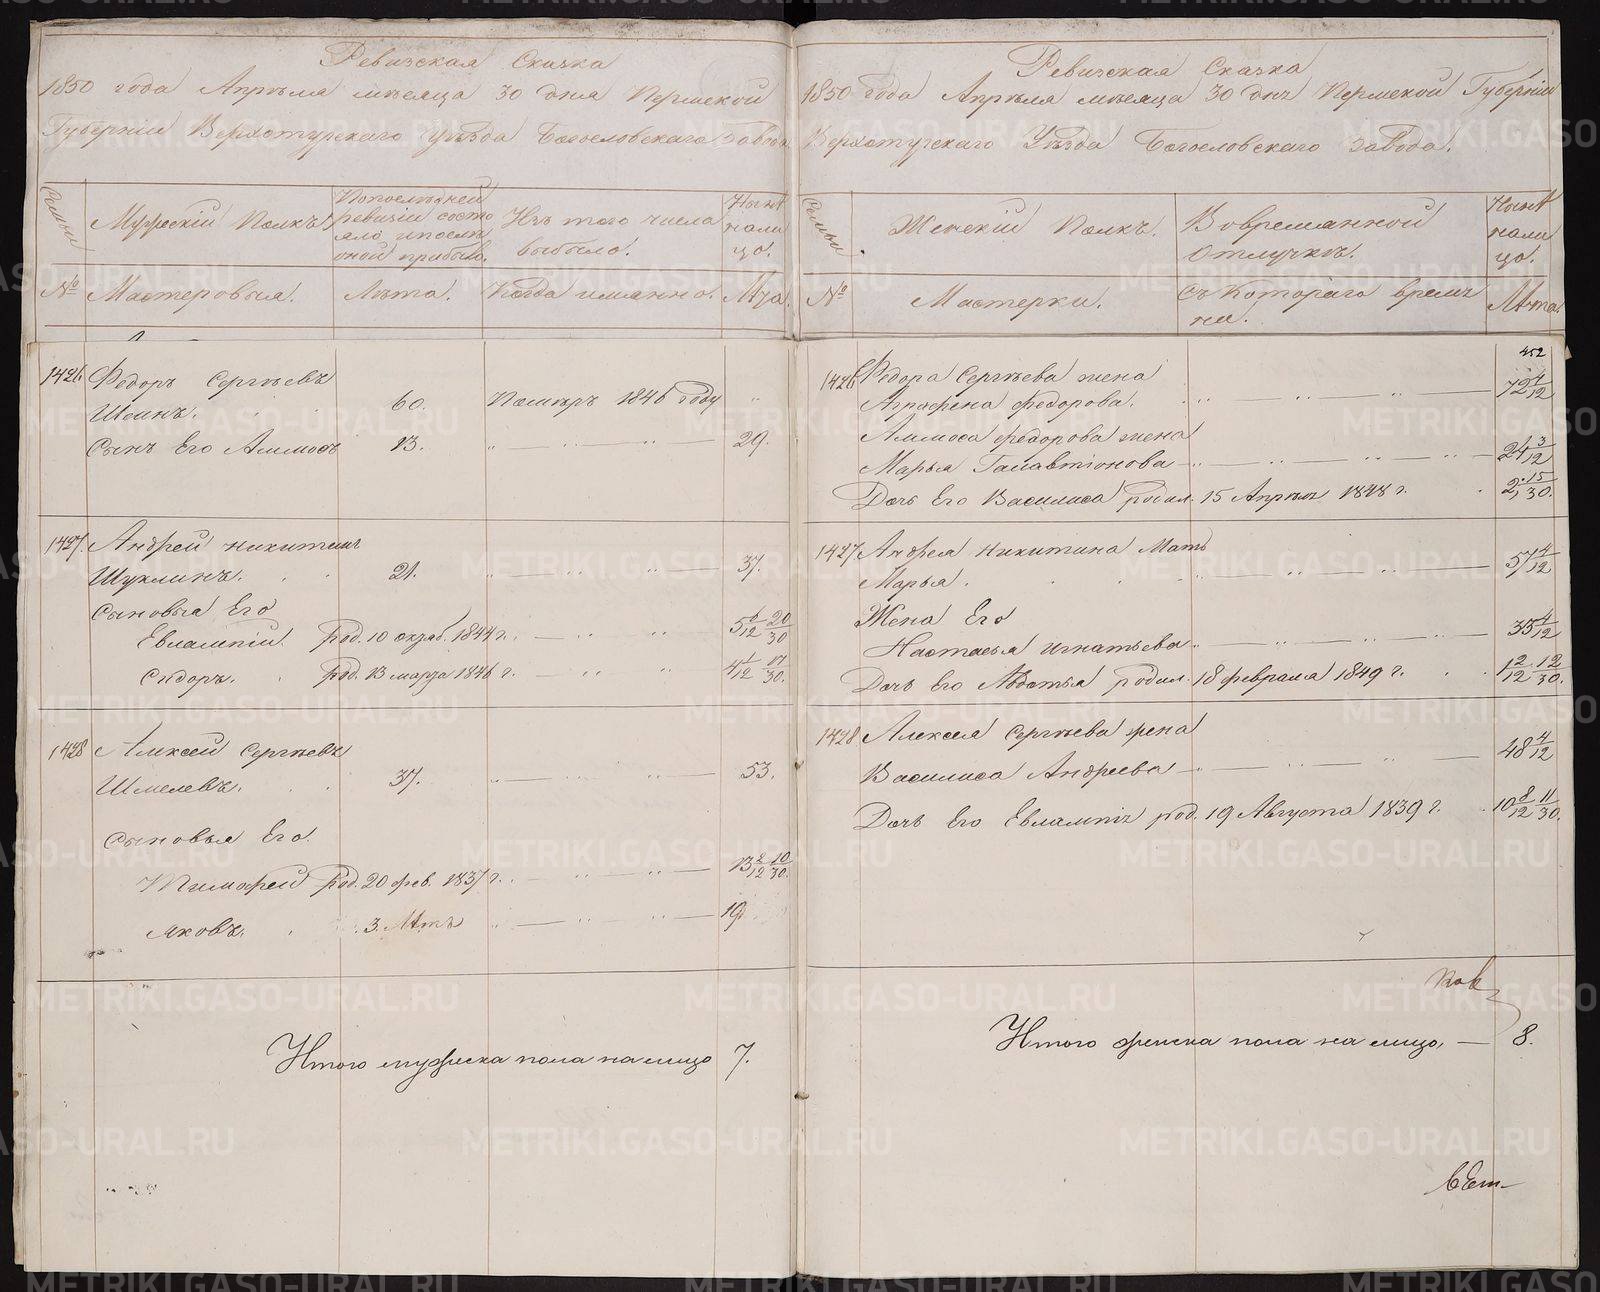 Ревизская Сказка
1850 года Апрѣля мѣсяца 30 дня Пермской
Губерніи Верхотурскаго Уѣзда Богословскаго завода
Семьи
Мужескій Полкъ
По последней ревизіи состояло и после оной прибыло.
Изъ того числа выбыло.
Нынѣ налицо.
№
Мастеровыя.
Лѣта.
Когда имянно.
Лѣта.
1426.
Федоръ Сергѣевъ
Шеинъ.
60.
Померъ 1846 году
Сынъ Его Аммосъ
13.
29.
1427.
Андрей Никитинъ
Шуклинъ.
21.
37.
Сыновья Его
Евлампій. род. 10 октяб. 1844 г. 5 6/12 20/30
Сидоръ. род. 13 марта 1846 г. 4 1/12 17/30.
1428
Алексей Сергѣевъ
Шмелевъ.
37.
53.
Сыновья Его.
Тимофей род. 20 фев. 1837 г. 13 2/12 10/30.
Яковъ.
3. Лѣтъ
19
Итого мужеска пола на лицо 7.
Ревизская Сказка
1850 года Апрѣля мѣсяца 30 дня Пермской Губерніи
Верхотурскаго Уѣзда Богословскаго завода.
Семьи
Женскій Полкъ.
Во временной отлучкѣ.
Нынѣ налицо.
№
Мастерки.
Съ котораго времени.
Лѣта.
452
1426
Федора Сергѣева жена
Аграфена Федорова. 72 4/12
Аммоса Федорова жена
Марья Галактіонова 24 3/12
Дочь Его Василиса родил. 15 Апрѣля 1848 г. 2. 15/30.
1427
Андрея Никитина Мать
Марья. 57 4/12
Жена Его
Настасья Игнатьева 35 4/12
Дочь Его Авдотья родил. 18 февраля 1849 г. 1 2/12 12/30.
1428
Алексея Сергѣева жена
Василиса Андреева 48 4/12
Дочь Его Евлампія род. 19 Августа 1839 г. 10 8/12 11/30.
Итого женска пола на лицо, — 8.